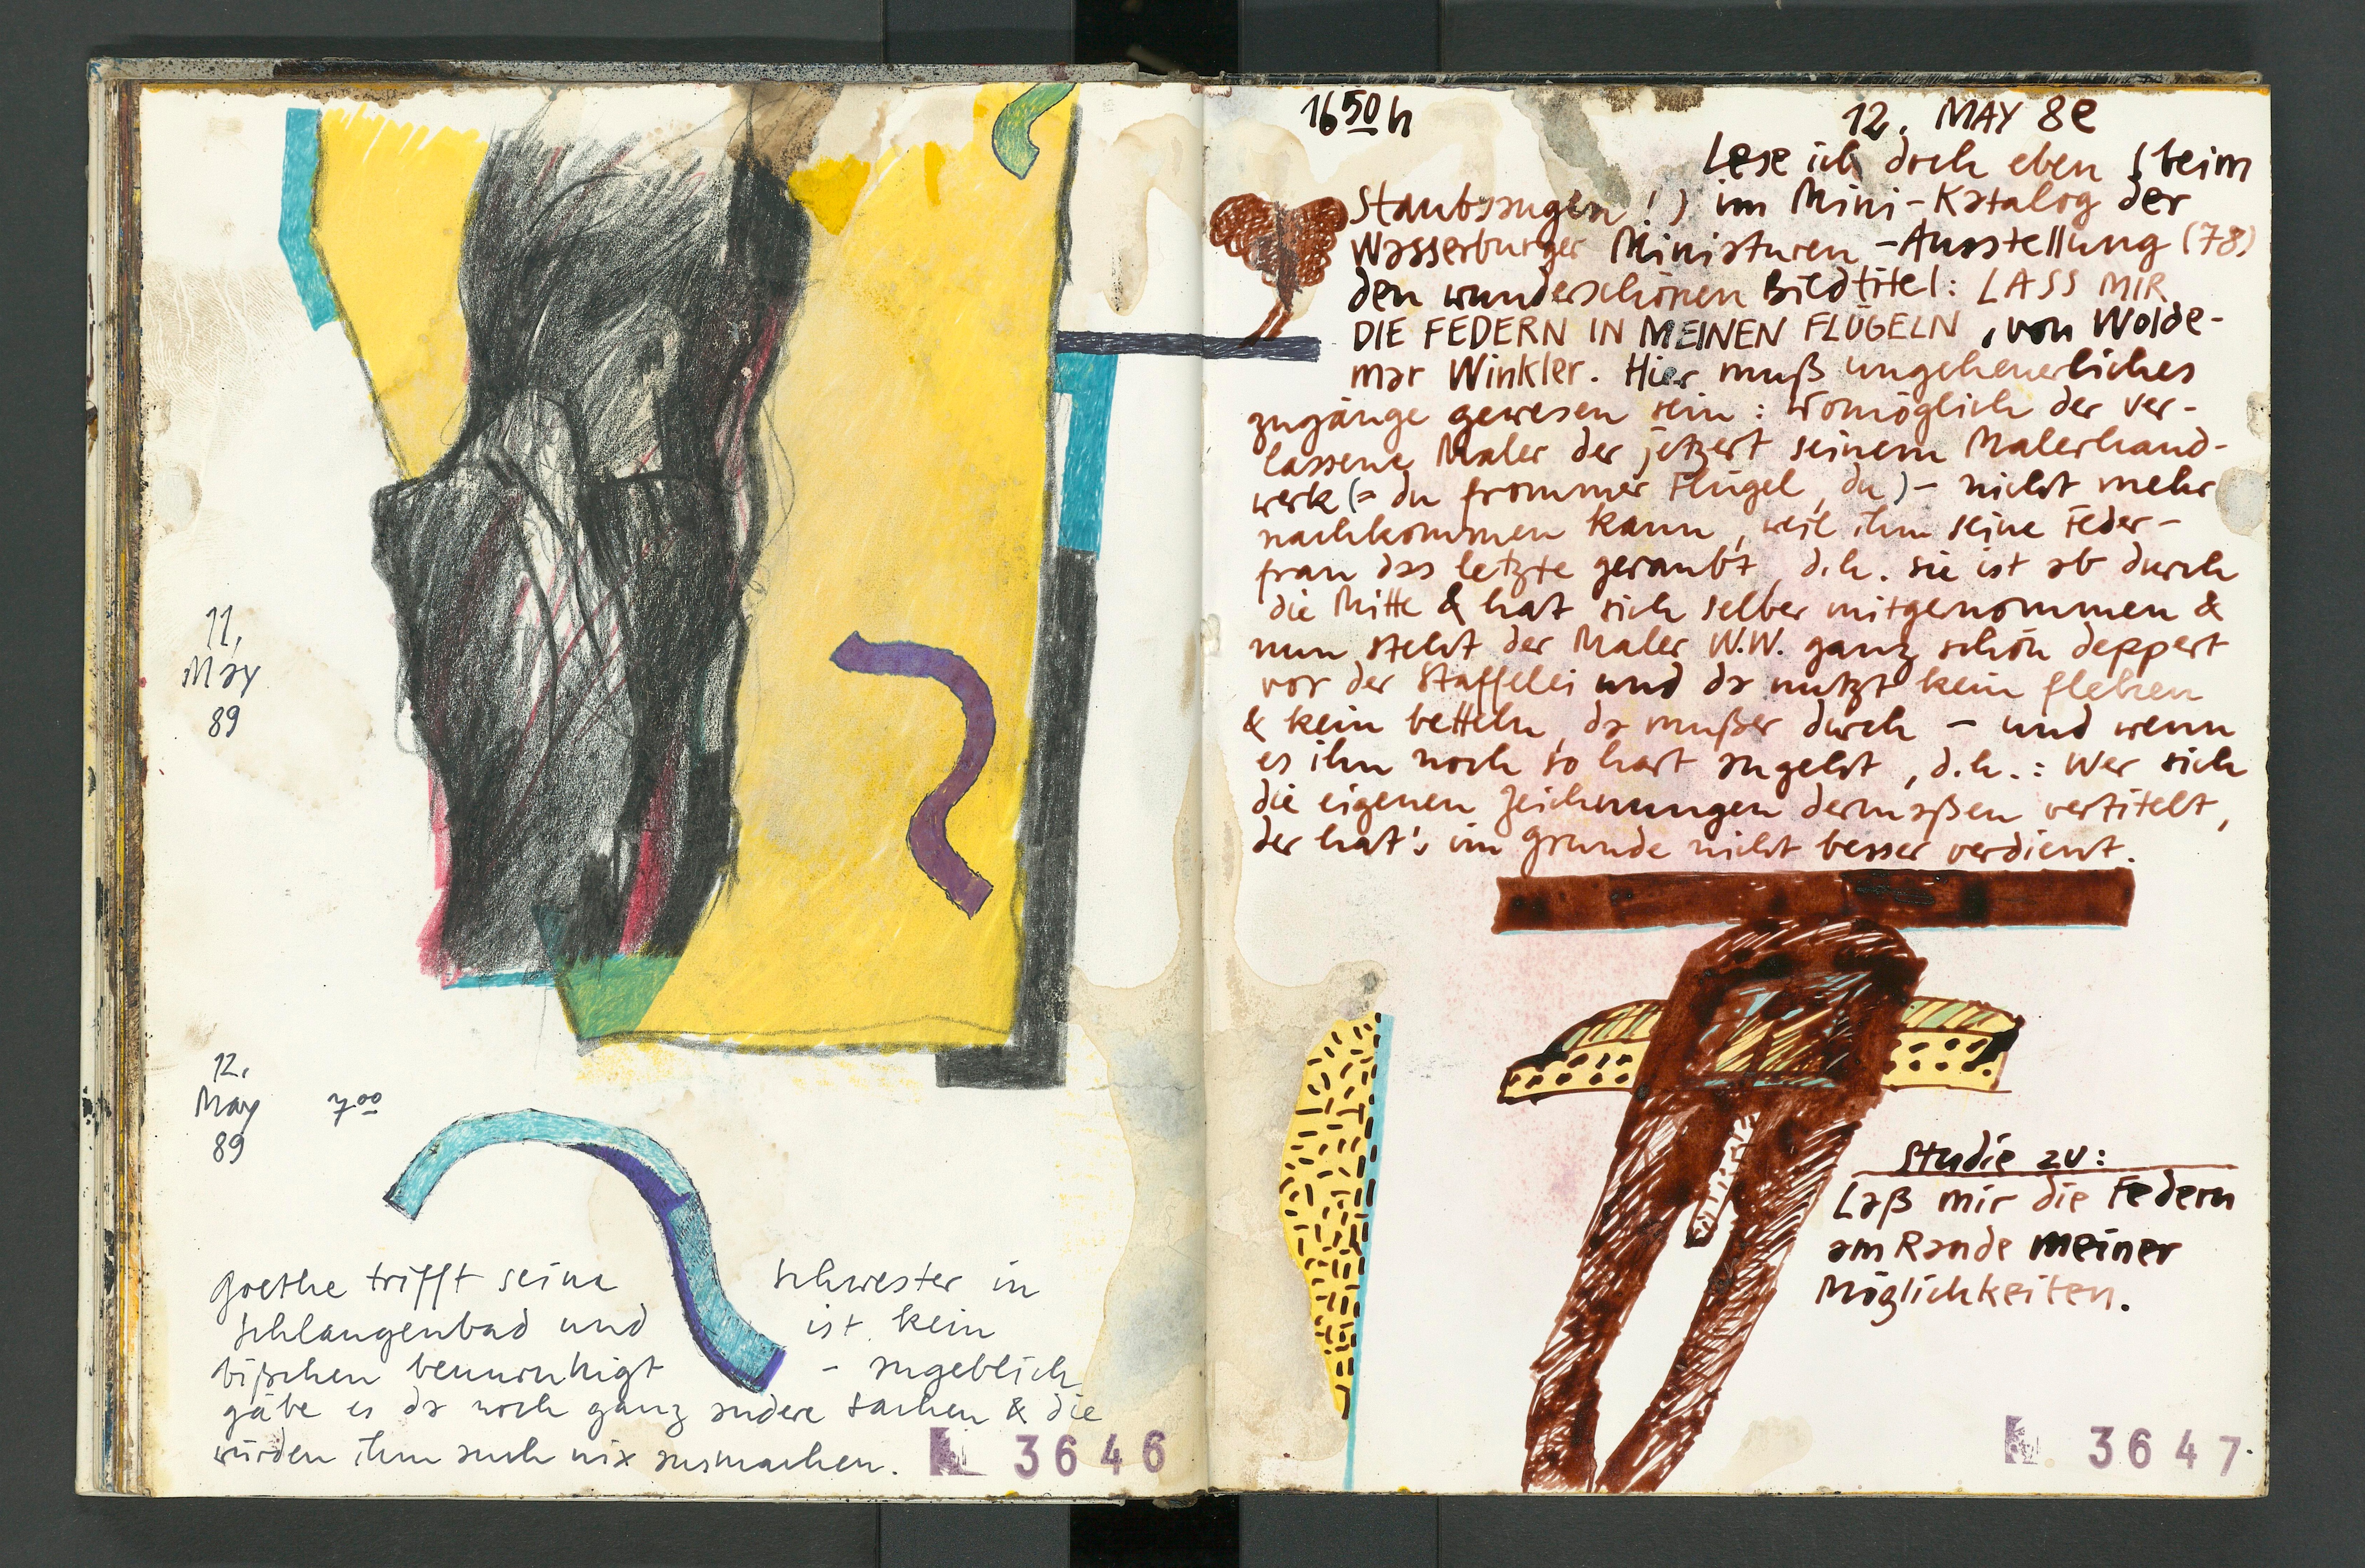 11.
May
89
12.
May 7 00
89
Goethe trifft seine Schwester in
Schlangenbad und ist kein
bißchen beunruhigt - angeblich
gäbe es da noch ganz andere Sachen & die
würden ihm auch nix ausmachen.
N. 3646
16 50 h 12. MAY 89
Lese ich doch eben (beim
Staubsaugen!) im Mini-Katalog der
Wasserburger Miniaturen-Ausstellung (78)
den wunderschönen Bildtitel: LASS MIR
DIE FEDERN IN MEINEN FLÜGELN, von Wolde-
mar Winkler. Hier muß ungeheuerliches
zugänge gewesen sein: womöglich der ver-
lassene Maler der jetzert seinem Malerhand-
werk (= du frommer Flügel, du) - nicht mehr
nachkommen kann, weil ihm seine Feder-
frau das letzte geraubt, d.h. sie ist ab durch
die Mitte & hat sich selber mitgenommen &
nun steht der Maler W.W. ganz schön deppert
vor der Staffelei und da nutzt kein flehen
& kein betteln, da mußer durch - und wenn
es ihn noch so hart angeht, d.h.: Wer sich
die eigenen Zeichnungen dermaßen vertitelt,
der hat's im Grunde nicht besser verdient.
Studie zu:
Laß mir die Federn
am Rande meiner
Möglichkeiten.
N. 3647.